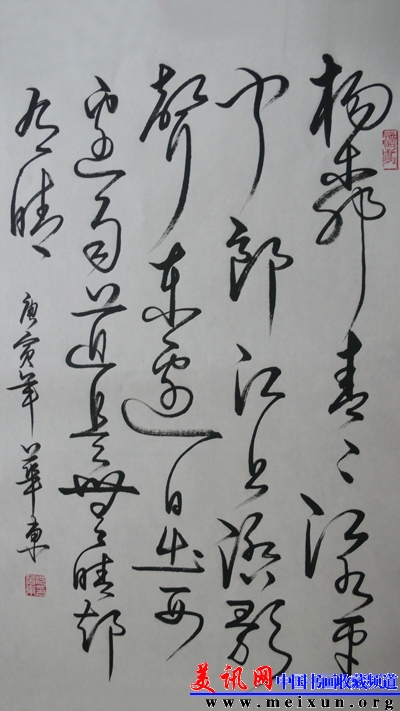 杨柳青〻江水平
闻郎江上踏歌
声东边日出西
边雨道是无晴却
有晴
庚寅年 華東
美讯网 中国书画收藏频道
www.meixun.org